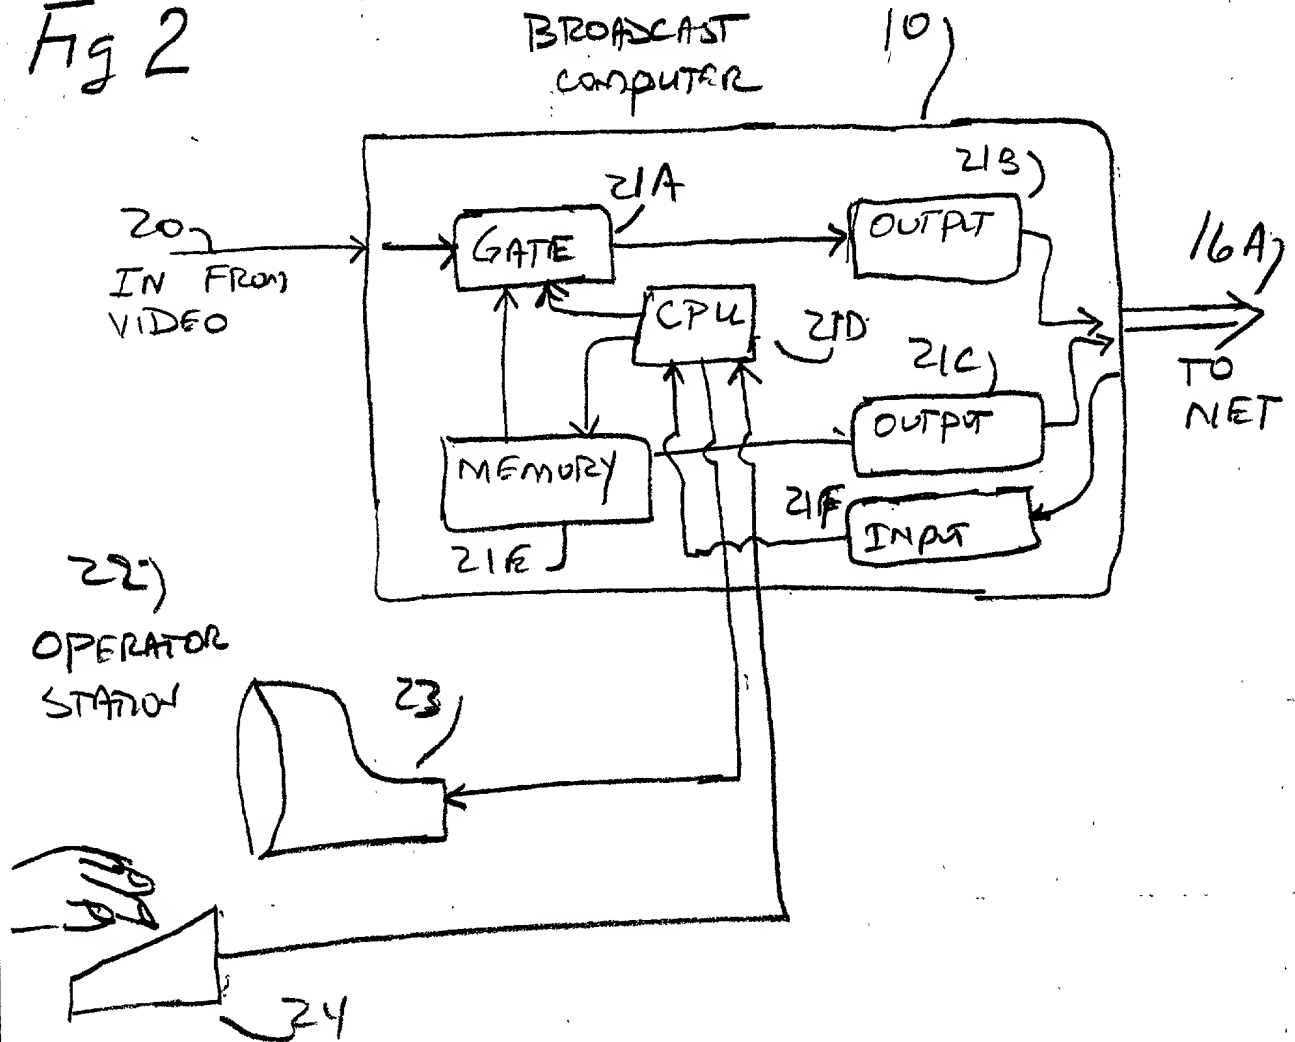 Fig 2
BROADCAST
COMPUTER
10
21A
21B
20
IN FROM
VIDEO
GATE
OUTPUT
16A
TO
NET
CPU
21D
21C
OUTPUT
MEMORY
21E
21F
INPUT
22
OPERATOR
STATION
23
24